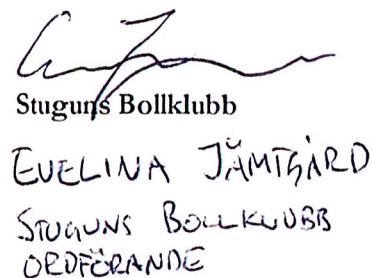 Stuguns Bollklubb
EVELINA JÄMTGÅRD
STUGUNS BOLLKLUBB
ORDFÖRANDE